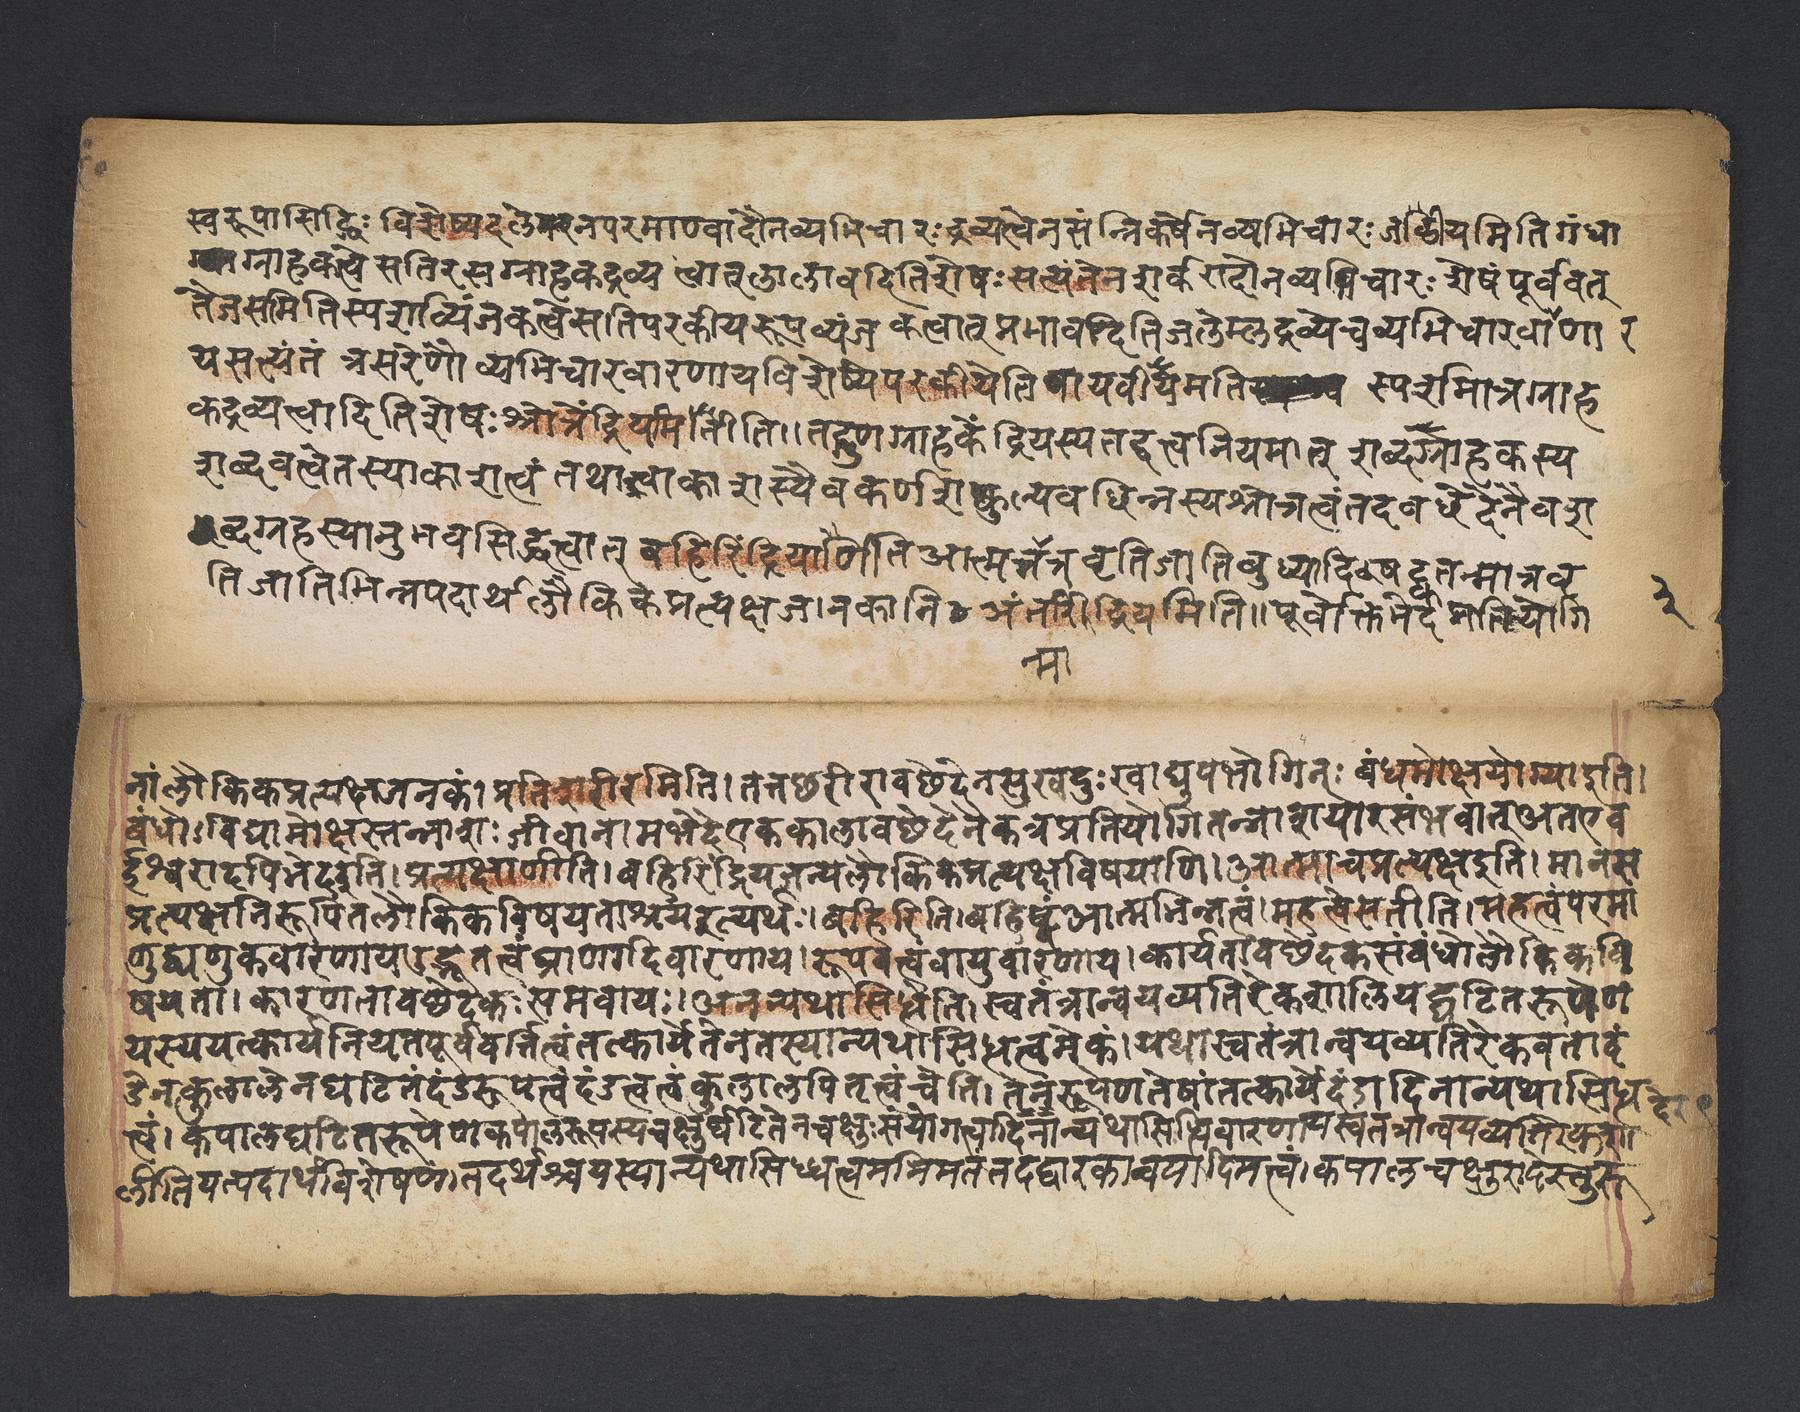 स्वरूपासिद्धिः विशेष्यदलेनपरमाण्वादौनव्यभिचारः द्रव्यत्वेनसंन्निकर्षेनव्यभिचारः जलीयमितिगंधा
ग्राहकत्वेसतिरसग्राहकद्रव्यत्वात्लालावदितिशेषः सत्यंतेनशर्करादौनव्यभिचारः शेषंपूर्ववत्
तैजसमितिस्पर्शाव्यंजकत्वेसतिपरकीयरूपव्यंजकत्वात्प्रभावदितिजलेम्लद्रव्येचव्यभिचारवाणा र
यसत्यंतं त्रसरेणौव्यभिचारवारणायविशेष्यपरकीयेति वायवीयमिति स्पर्शमात्रग्राह
कद्रव्यत्वादितिशेषः श्रोत्रेंद्रियमिति।।तद्गुणग्राहकेंद्रियस्यतद्वत्त्वनियमात् शब्दग्राहकस्य
शब्दवत्वेतस्याकाशत्वं तथात्वाकाशस्यैवकर्णशष्कुल्यवछिन्नस्यश्रोत्रत्वंतदवछेदेनैवश
ब्दग्रहस्यानुभवसिद्धत्वात् बहिरिंद्रियाणीति आत्ममात्रवृत्तिजातिबुध्यादि तन्मात्रवृ
तिजातिभिन्नपदार्थलौकिकप्रत्यक्षजनकानि अंतरिंद्रियमिति॥पूर्वोक्तभेदप्रतियोगि
३
त्मा
नांलौकिकप्रत्यक्षजनकं।प्रतिशरीरमिति।तत्तछरीरावछेदेनसुखदुःखाद्युपभोगिनः बंधमोक्षयोग्याइति।
बंधोऽविद्यामोक्षस्तन्नाशः जीवानामभेदेएककालावछेदेनैकत्रप्रतियोगितन्नाशयोरसंभवात्अतएव
ईश्वरादपिभेदइति।प्रत्यक्षाणीति।बहिरिंद्रियजन्यलौकिकप्रत्यक्षविषयाणि।आत्माचप्रत्यक्षइति।मानस
प्रत्यक्षनिरूपितलौकिकविषयताश्रयइत्यर्थः।बहिरिति।बहिष्ट्वंआत्मभिन्नत्वं।महत्वेसतीति।महत्वंपरमा
णुद्व्यणुकवारणायउद्भूतत्वंघ्राणादिवारणाय।रूपवत्वंवायुवारणाय।कार्यतावछेदकसंबंधोलौकिकवि
षयता।कारणतावछेदकःसमवायः।अनन्यथासिधेति।स्वतंत्रान्वयव्यतिरेकशालियद्घटितरूपेण
यस्ययत्कार्यनियतपूर्ववर्त्तित्वंतत्कार्येतेनतस्यान्यथासिधत्वमेकं।यथास्वतंत्रान्वयव्यतिरेकवतादं
डेनकुलालेनघटितंदंडरूपत्वंदंडत्वत्वंकुलालपितृत्वंचेति।तेनरूपेणतेषांतत्कार्येदंडादिनान्यथासिध
त्वं।कपालघटितरूपेणकपालरूपस्यचक्षुर्घटितेनचक्षुःसंयोगत्वादिनान्यथासिधिवारणायस्वतंत्रान्वयव्यतिरेकशा
लीतियत्पदार्थविशेषणं।तदर्थश्चयस्यान्यथासिध्धत्वमभिमतंतदद्वारकान्वयादिमत्त्वं।कपालचक्षुरादेस्तुरू